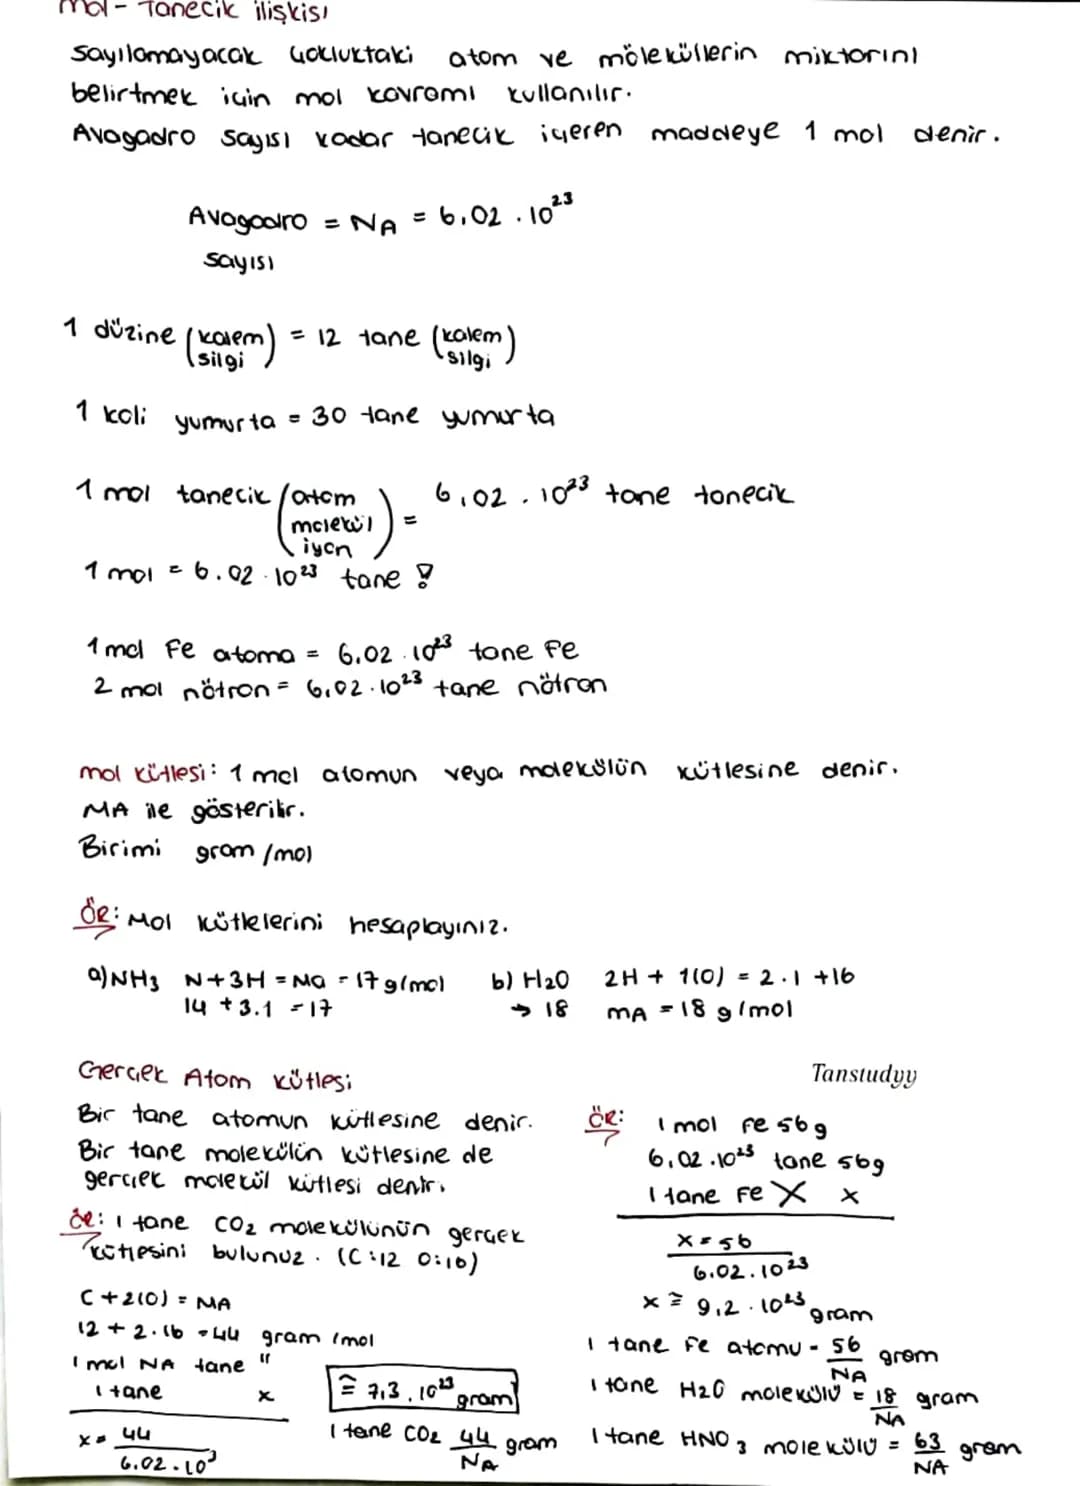 mol - Tanecik ilişkisi
Sayılamayacak çokluktaki atom ve möleküllerin miktarını
belirtmek için mol kavramı kullanılır.
Avagadro sayısı kadar tanecik içeren maddeye 1 mol denir.
Avagadro = NA = 6,02 . 10²³
sayısı
1 düzine (kalem silgi) = 12 tane (kalem silgi)
1 koli yumurta = 30 tane yumurta
1 mol tanecik (atom molekül iyon) = 6,02 . 10²³ tane tanecik
1 mol = 6.02 . 10²³ tane !
1 mol Fe atoma = 6,02 . 10²³ tane Fe
2 mol nötron = 6,02 . 10²³ tane nötron
mol kütlesi: 1 mol atomun veya molekülün kütlesine denir.
MA ile gösterilir.
Birimi gram/mol
Ör: Mol kütlelerini hesaplayınız.
a) NH₃ N+3H = Ma = 17 g/mol b) H₂O 2H + 1(O) = 2.1 +16
14 + 3.1 = 17 → 18 mA = 18 g/mol
Gerçek Atom kütlesi
Bir tane atomun kütlesine denir.
Bir tane molekülün kütlesine de
gerçek molekül kütlesi denir.
Ör: 1 tane CO₂ molekülünün gerçek
kütlesini bulunuz. (C:12 O:16)
C + 2(O) = MA
12 + 2.16 = 44 gram /mol
1 mol NA tane "
1 tane x
x = 44
6.02 . 10³
≅ 7,3 . 10²³ gram
1 tane CO₂ 44 gram
NA
Tanstudyy
Ör: 1 mol Fe 56g
6,02 .10²³ tane 56g
1 tane Fe X x
x = 56
6.02 . 10²³
x ≅ 9,2 . 10²³ gram
1 tane Fe atomu = 56 gram
NA
1 tane H₂O molekülü = 18 gram
NA
1 tane HNO₃ molekülü = 63 gram
NA